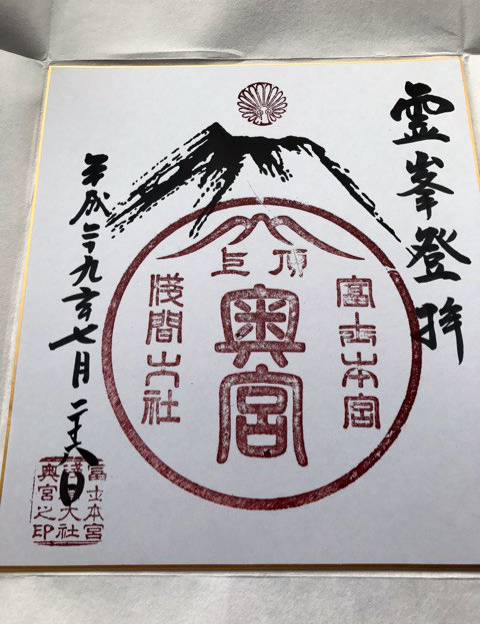 霊峯登拝
頂上
富士本宮
奥宮
浅間大社
平成二十九年七月日
富士本宮
浅間大社
奥宮之印